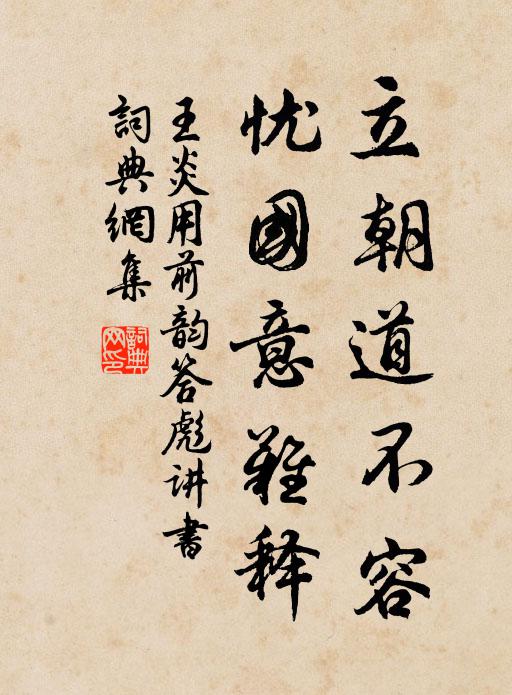 立朝道不容
忧國意难释
王炎用前韵答彪讲書
詞典網集
詞典网印